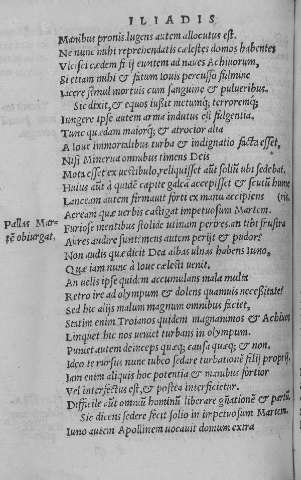 ILIADIS
Manibus pronis. lugens autem allocutus est.
Ne nunc mihi reprehendatis cælestes domos habentes
Vlcisci cædem filij euntem ad naues Achiuorum,
Si etiam mihi & fatum Iouis percusso fulmine
Iacere simul mortuis cum sanguine & pulueribus.
Sic dixit, & equos iußit metumq; terroremq;
Iungere ipse autem arma indutus est fulgentia.
Tunc quædam maiorq; & atrocior alia
A Ioue immortalibus turba & indignatio facta esset,
Nisi Minerua omnibus timens Deis
Mota esset ex uestibulo, reliquisset aũt soliũ ubi sedebat.
Huius aũt à quidẽ capite galea accepisset & scutũ hume
(ris,
Lanceam autem firmauit forti ex manu accipiens
Aeream quæ uerbis castigat impetuosum Martem.
Pallas Mar-
tẽ obiurgat.
Furiose mentibus stolide uinam perdres. an tibi frustra
Aures audire sunt: mens autem perijt & pudor
Non audis quæ dicit Dea albas ulnas habens Iuno,
Quæ iam nunc à Ioue cælesti uenit.
An uelis ipse quidem accumulans mala multa
Retro ire ad olympum & dolens quamuis neceßitate
Sed hic alijs malum magnum omnibus faciet,
Statim enim Troianos quidem magnanimos & Achiuos
Linquet hic nos ueniet turbans in olympum.
Puniet autem deinceps quæq; causa quæq; & non.
Ideo te rursus nunc iubeo sedare turbationẽ filij proprij.
Iam enim aliquis hoc potentia & manibus fortior
Vel interfectus est, & postea interficietur.
Difficile aũt omniũ hominũ liberare gñationẽ & partũ
Sic dicens sedere fecit solio in impetuosum Martem.
Iuno autem Apollinem uocauit domum extra